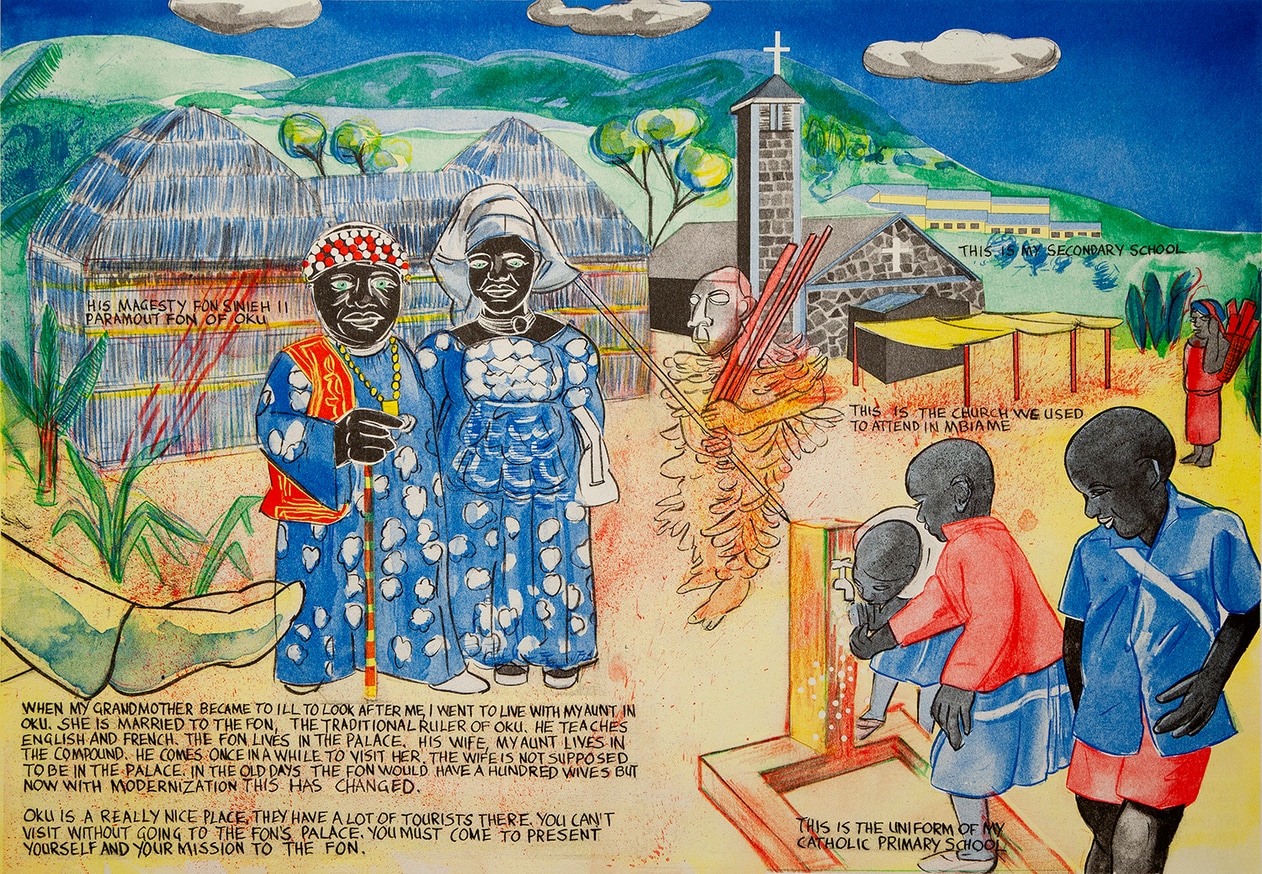 HIS MAGESTY FON SINIEH II
PARAMOUT FON OF OKU
THIS IS MY SECONDARY SCHOOL
THIS IS THE CHURCH WE USED
TO ATTEND IN MBIAME
WHEN MY GRANDMOTHER BECAME TO ILL TO LOOK AFTER ME, I WENT TO LIVE WITH MY AUNT IN
OKU. SHE IS MARRIED TO THE FON, THE TRADITIONAL RULER OF OKU. HE TEACHES
ENGLISH AND FRENCH. THE FON LIVES IN THE PALACE. HIS WIFE, MY AUNT LIVES IN
THE COMPOUND. HE COMES ONCE IN A WHILE TO VISIT HER, THE WIFE IS NOT SUPPOSED
TO BE IN THE PALACE. IN THE OLD DAYS THE FON WOULD HAVE A HUNDRED WIVES BUT
NOW WITH MODERNIZATION THIS HAS CHANGED.
OKU IS A REALLY NICE PLACE, THEY HAVE A LOT OF TOURISTS THERE. YOU CAN'T
VISIT WITHOUT GOING TO THE FON'S PALACE. YOU MUST COME TO PRESENT
YOURSELF AND YOUR MISSION TO THE FON.
THIS IS THE UNIFORM OF MY
CATHOLIC PRIMARY SCHOOL